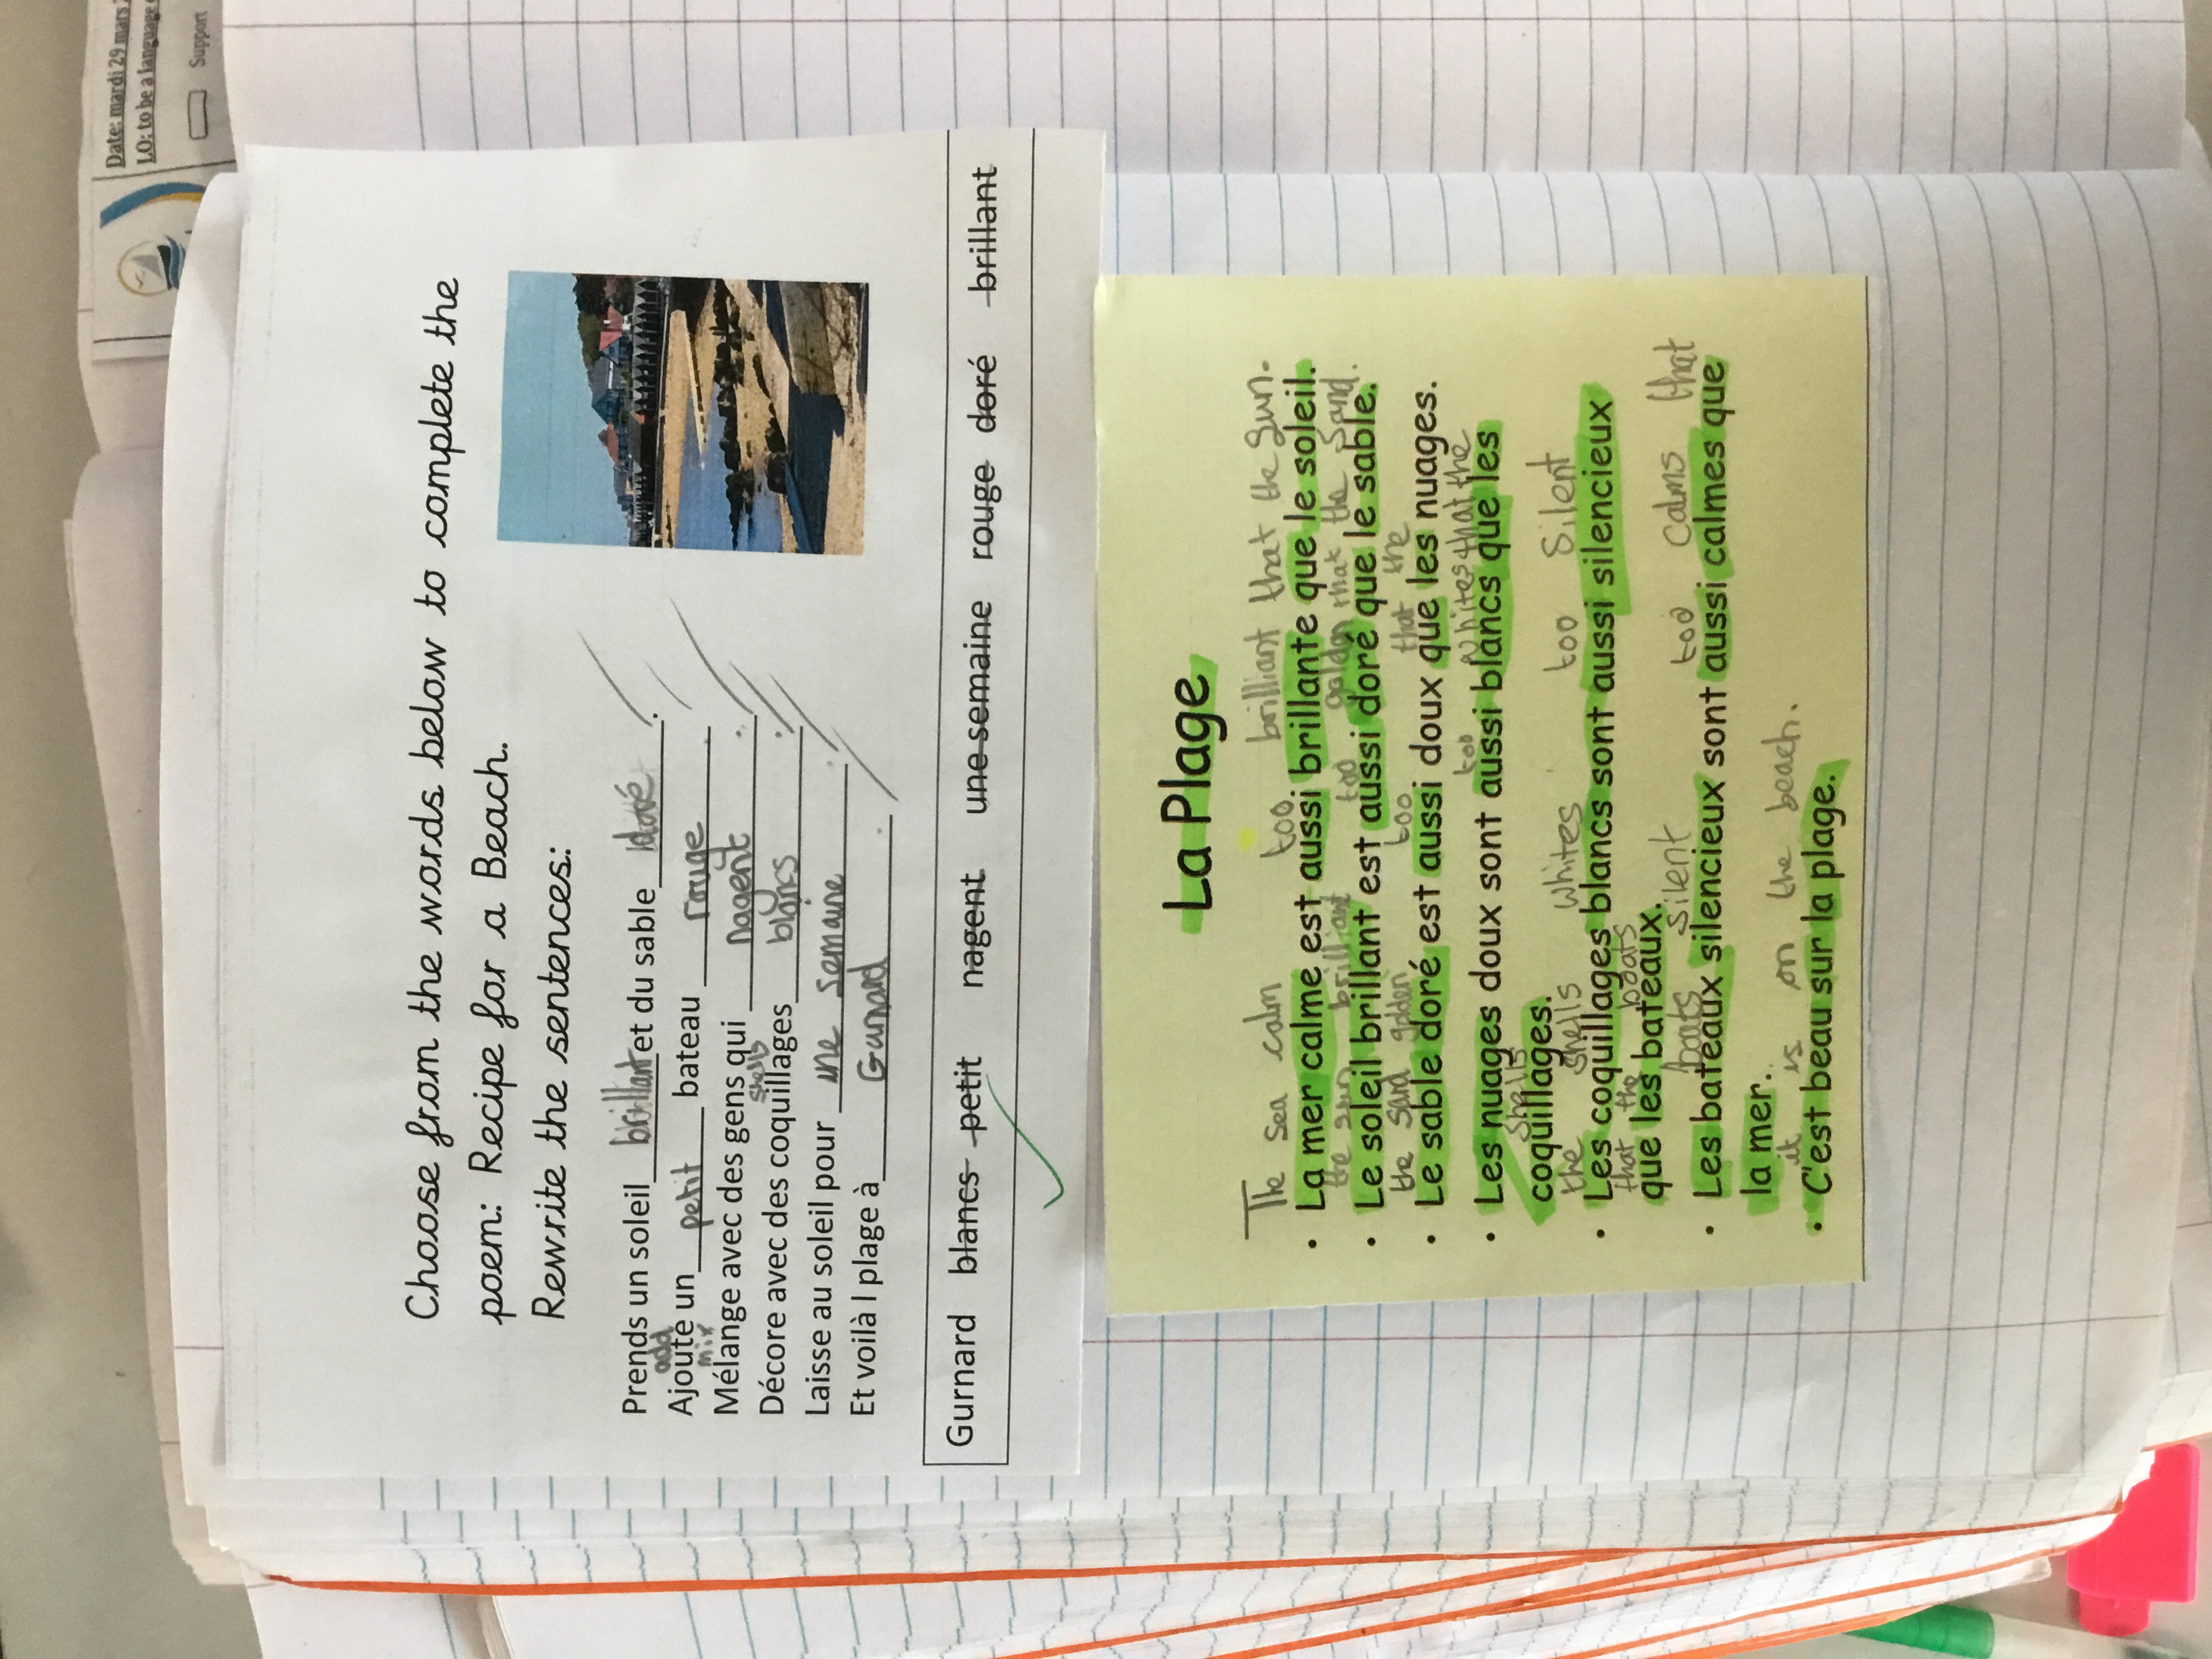 Date: mardi 29 mars
LO: to be a language
Support
Choose from the words below to complete the
poem: Recipe for a Beach.
Rewrite the sentences:
Prends un soleil brillant et du sable doré.
add
Ajoute un petit bateau rouge
mix
Mélange avec des gens qui nagent.
shells
Décore avec des coquillages blancs.
Laisse au soleil pour une semaine.
Et voilà l plage à Gurnard.
Gurnard blancs petit nagent une semaine rouge doré brillant
La Plage
The sea calm too brilliant that the sun.
• La mer calme est aussi brillante que le soleil.
the sun brilliant too golden that the sand.
• Le soleil brillant est aussi doré que le sable.
the sand golden too that the
• Le sable doré est aussi doux que les nuages.
too whites that the
• Les nuages doux sont aussi blancs que les
shells
coquillages.
the shells whites too silent
• Les coquillages blancs sont aussi silencieux
that the boats
que les bateaux.
boats silent too calms that
• Les bateaux silencieux sont aussi calmes que
la mer.
it is on the beach.
• C'est beau sur la plage.